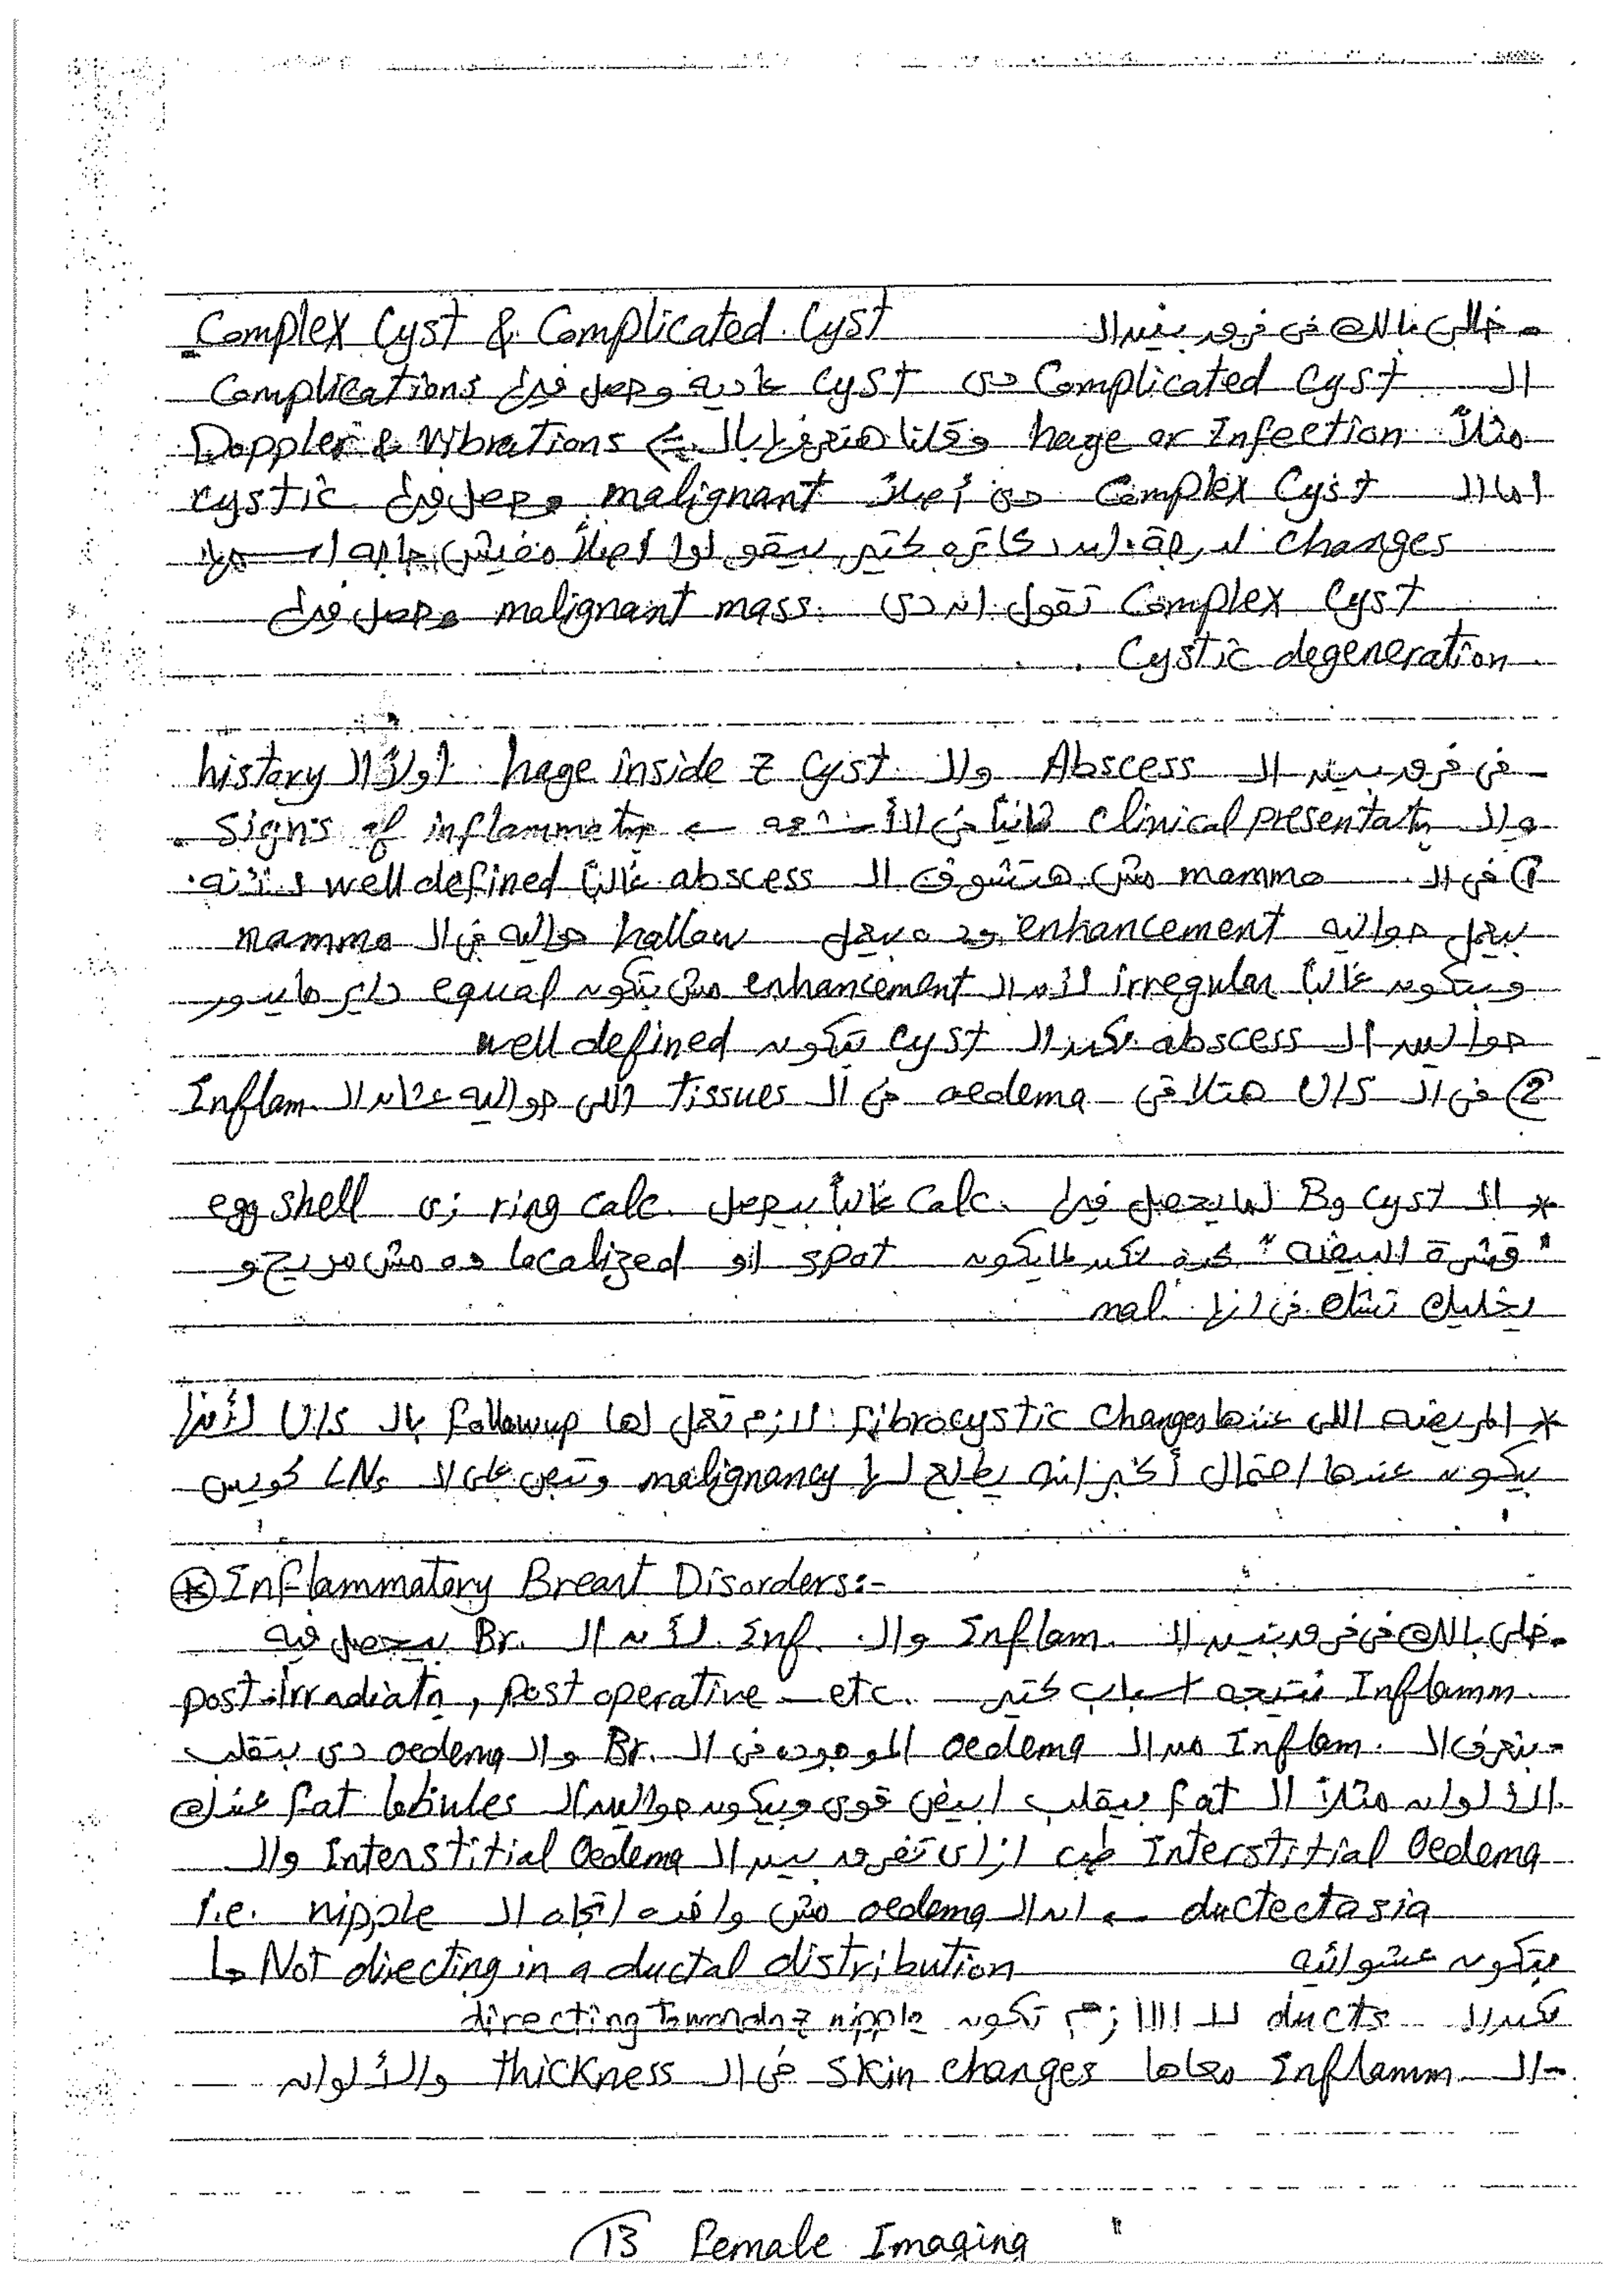 - خللى بالك فى فرق بين الـ Complex Cyst & Complicated Cyst
الـ Complicated Cyst دى Cyst عاديه وحصل فيها Complications
مثلاً hage or Infection وكانا هنعرفها بالـ ← Doppler & Vibrations
اما الـ Complex Cyst دى أصلاً malignant وحصل فيها cystic
changes لدرجة ان دكاتره كتير بيقولوا اصلاً مفيش حاجه اسمها
Complex Cyst تقول ان دى malignant mass وحصل فيها
Cystic degeneration
- فى فرق بين الـ Abscess والـ hage inside z Cyst اولاً الـ history
والـ clinical presentatn ثانياً فى الأشعه ← Signs of inflammatn
① فى الـ mammo مش هتشوف الـ abscess غالباً well defined لانه
بيعمل حواليه enhancement وده بيعمل hallow حواليه فى الـ mammo
وبيكون غالباً irregular لأن الـ enhancement مش بتكون equal داير مايدور
حوالين الـ abscess عكس الـ cyst بتكون well defined
② فى الـ U/S هتلاقى oedema فى الـ tissues اللى حواليه عشان الـ Inflam.
* الـ Bg Cyst لما يحصل فيها Calc. غالباً بيحصل ring calc. زى egg shell
"قشرة البيضه" كده عكس لما يكون spot او localized ده مش مريح و
يخليك تشك فى انها mal.
* المريضه اللى عندها fibrocystic changes لازم تعمل لها followup بالـ U/S لأنها
بيكون عندها احتمال أكبر انه يطلع لها malignancy وتبص على الـ LNs كويس
⊛ Inflammatory Breast Disorders:-
- خلى بالك فى فرق بين الـ Inflam. والـ Inf. لأن الـ Br. بيحصل فيه
Inflamm. نتيجه اسباب كتير post-irradiatn, post operative — etc.
- بنعرف الـ Inflam. من الـ oedema الموجوده فى الـ Br. والـ oedema دى بتقلب
الألوان مثلاً الـ fat بيقلب ابيض قوى وبيكون حوالين الـ fat lobules عندك
Interstitial Oedema طب ازاى تفرق بين الـ Interstitial Oedema والـ
ductectasia ← ان الـ oedema مش واخده اتجاه الـ nipple i.e.
بتكون عشوائيه ↳ Not directing in a ductal distribution
عكس الـ ducts لازم تكون directing towards z nipple
- الـ Inflamm. معاها skin changes فى الـ thickness والألوان
13 Female Imaging